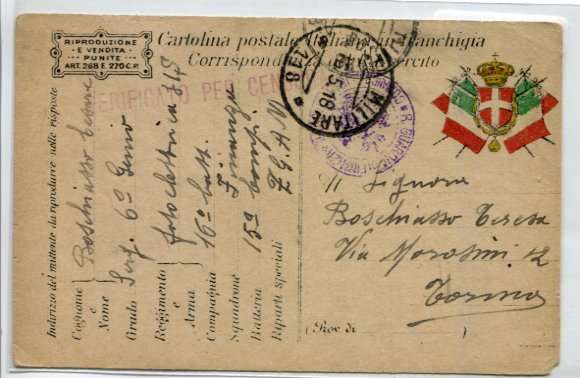 RIPRODUZIONE
E VENDITA
PUNITE
ART. 268 E 270 C.P.
Cartolina postale italiana in franchigia
Corrispondenza del R. Esercito
VERIFICATO PER CENSURA
MILITARE
118
5.18
R. GUARDIA DI FINANZA
Indirizzo del mittente da riprodurre nelle risposte
Cognome e Nome Boschiasso
Grado Serg. 6° Genio
Reggimento e Arma fotoelettrica
Compagnia 16° batt.
Squadrone Finanza
Batteria 15a comp.
Riparti speciali Z.G. A M
Signora
Boschiasso Teresa
Via Morosini 12
Torino
(Prov. di )